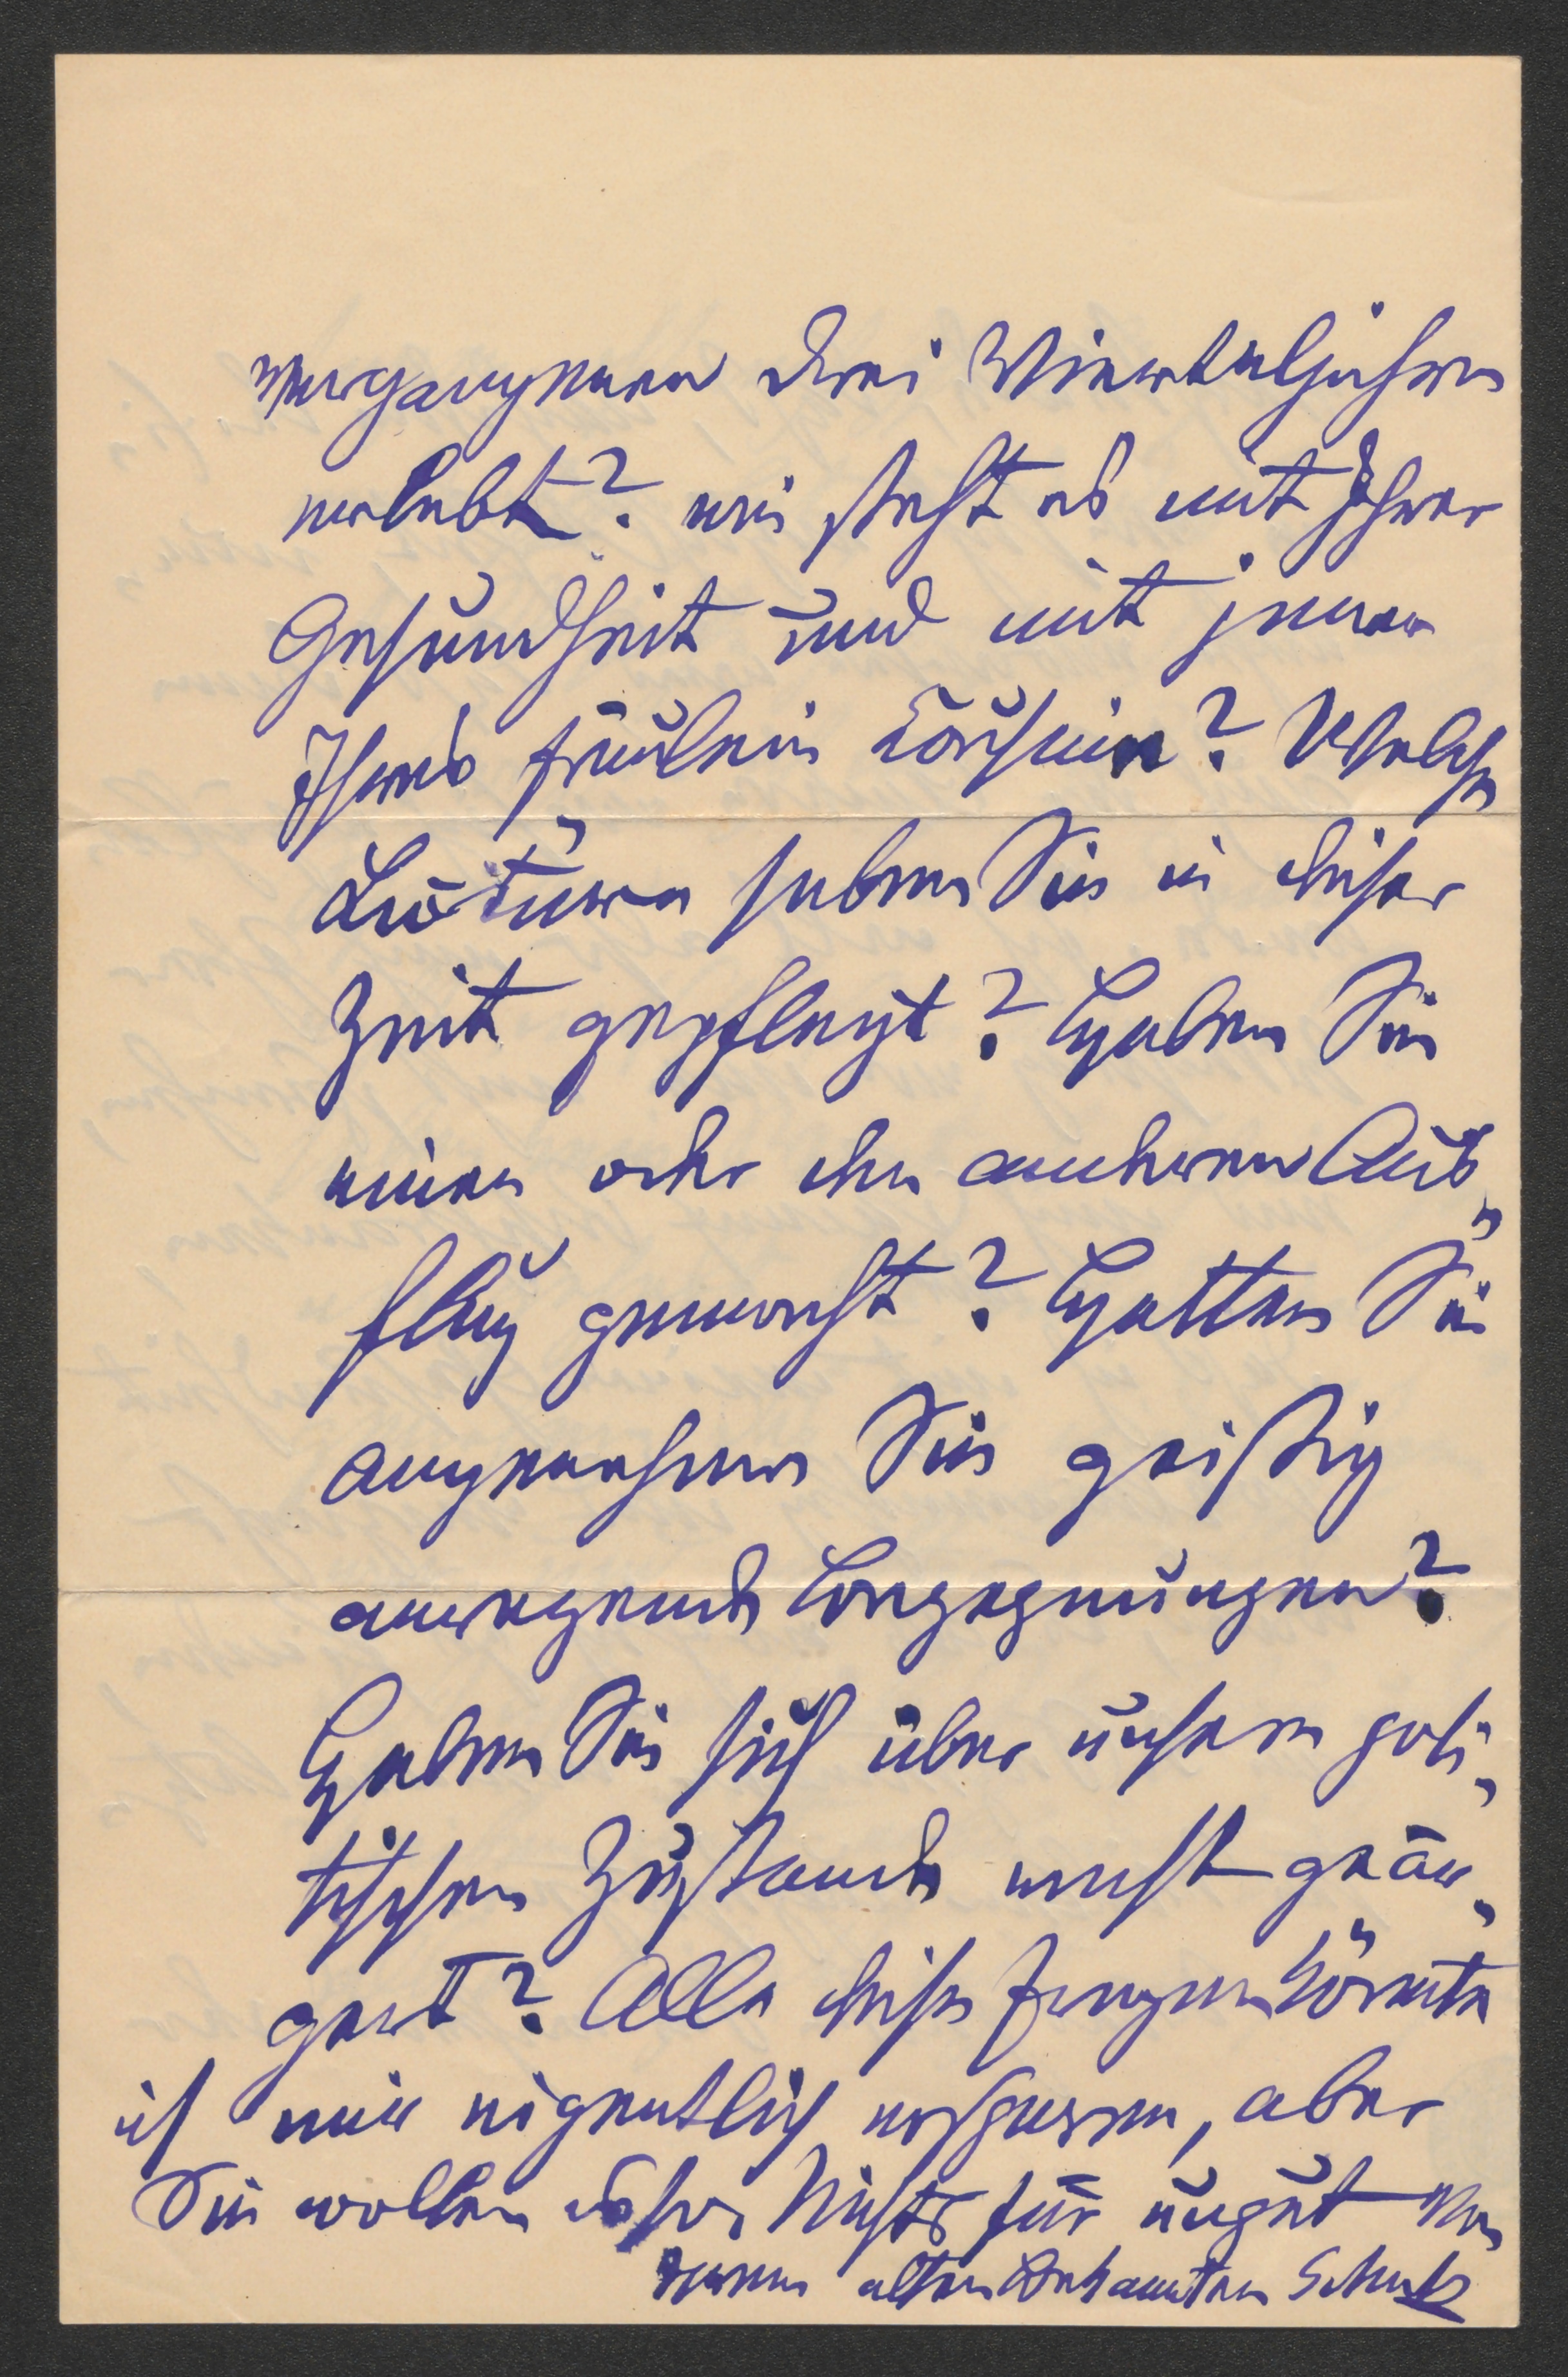 vergangenen drei Vierteljahren
verlebt? wie steht es mit Ihrer
Gesundheit und mit jener
Ihres Fräulein Cousine? Welche
Lectüre haben Sie in dieser
Zeit gepflegt? Haben Sie
einen oder den anderen Aus„
flug gemacht? Hatten Sie
angenehme Sie geistig
anregende Begegnungen?
Haben Sie sich über unsere poli„
tischen Zustände recht geär„
gert? Alle diese Fragen könnte
ich mir eigentlich ersparen, aber
Sie wollen es schon Nichts für ungut von
Ihrem alten Bekannten